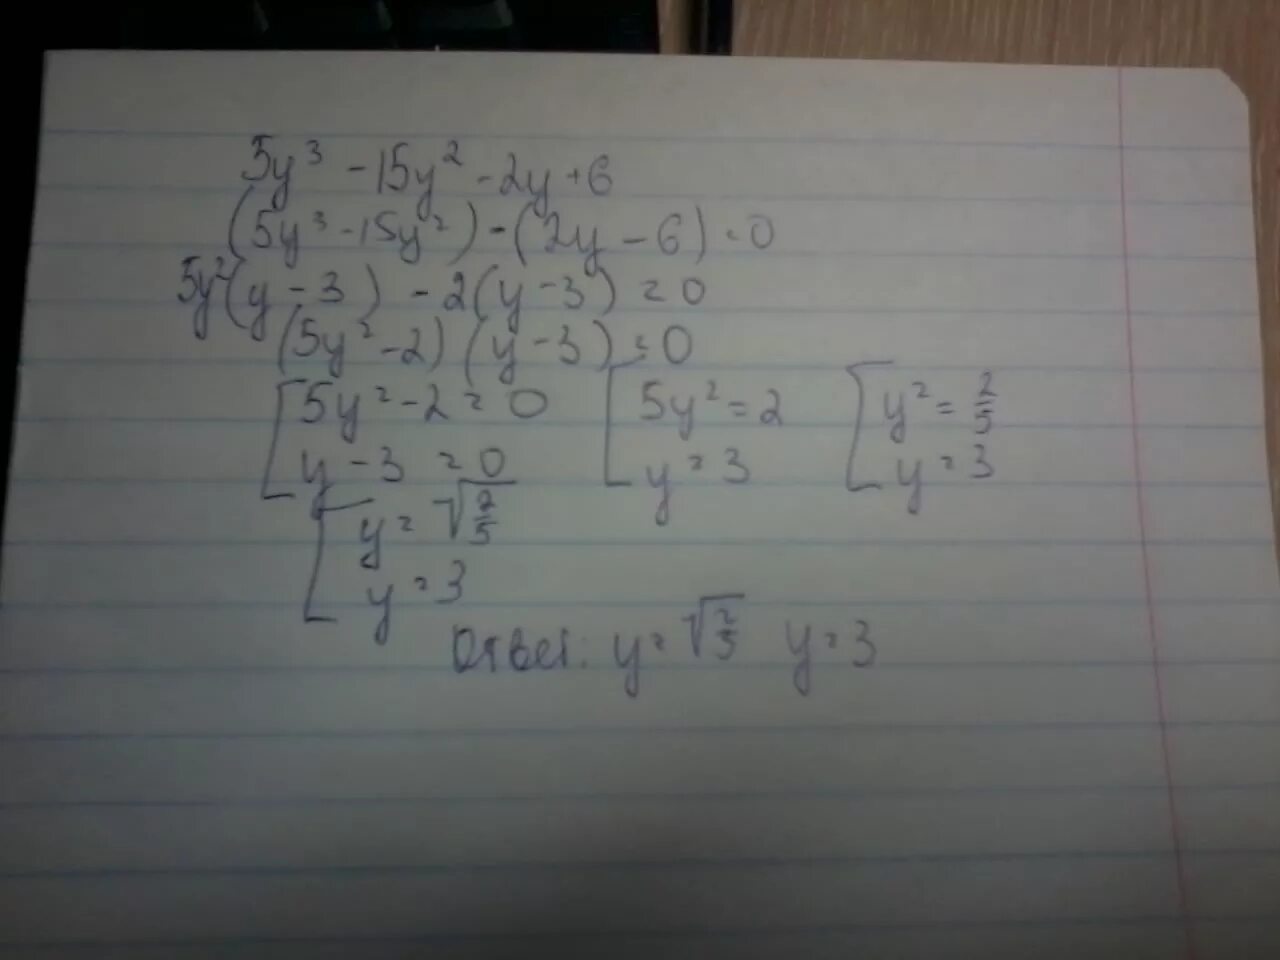 5y³ - 15y² - 2y + 6
(5y³ - 15y²) - (2y - 6) = 0
5y²(y - 3) - 2(y - 3) = 0
(5y² - 2)(y - 3) = 0
[5y² - 2 = 0 [5y² = 2 [y² = 2/5
y - 3 = 0 y = 3 y = 3
[y = √2/5
y = 3
Ответ: y = √2/5 y = 3